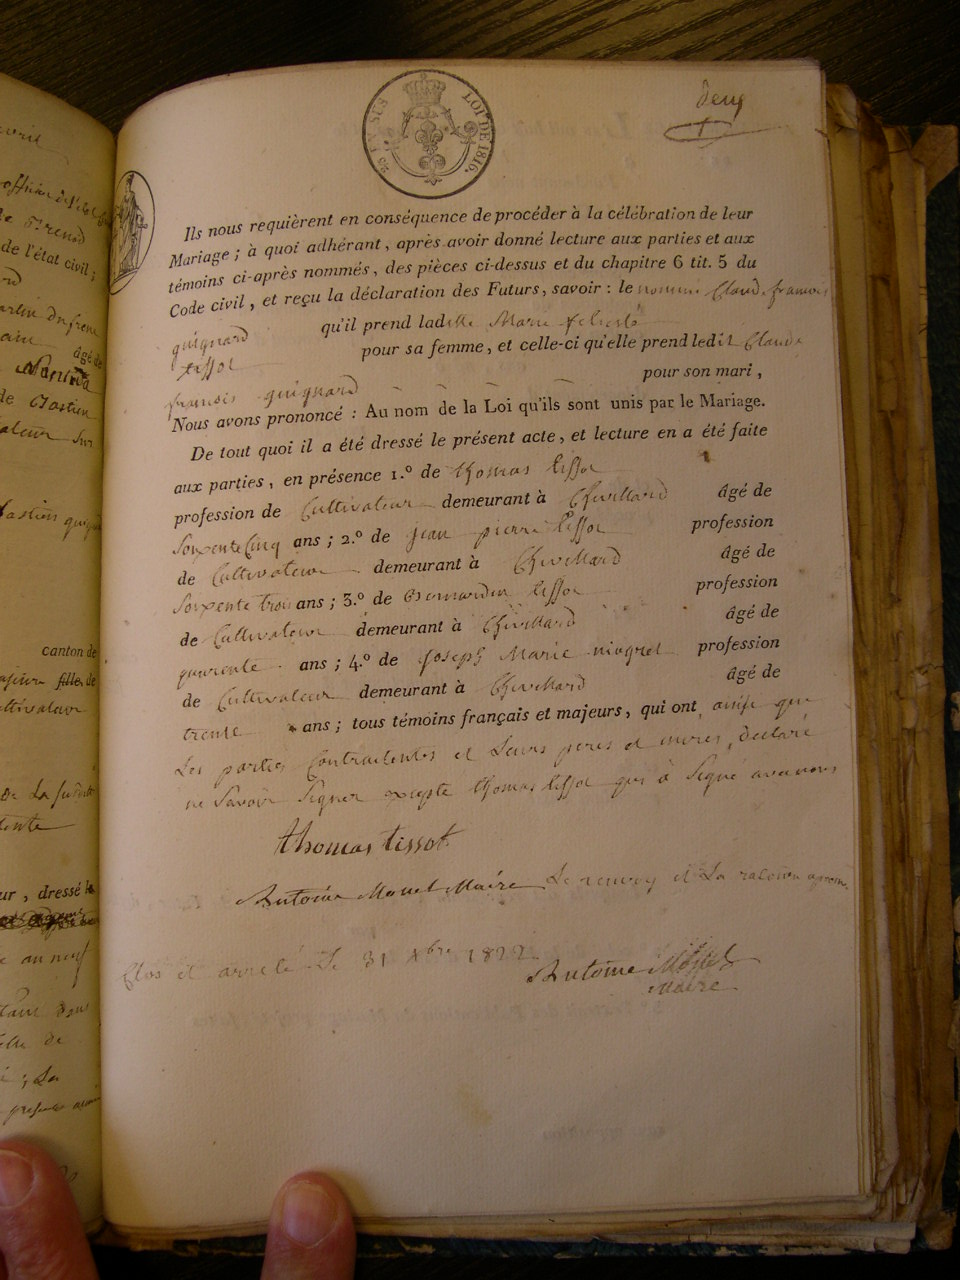 avril
de l'état civil;
âgé de
de Bastien
canton de
cultivateur
ur, dressé le
deux
25 c. EN SUS
LOI DE 1816.
Ils nous requièrent en conséquence de procéder à la célébration de leur
Mariage; à quoi adhérant, après avoir donné lecture aux parties et aux
témoins ci-après nommés, des pièces ci-dessus et du chapitre 6 tit. 5 du
Code civil, et reçu la déclaration des Futurs, savoir: le nommé Claude françois
guignard qu'il prend laditte Marie felicité
tissot pour sa femme, et celle-ci qu'elle prend ledit Claude
françois guignard pour son mari,
Nous avons prononcé: Au nom de la Loi qu'ils sont unis par le Mariage.
De tout quoi il a été dressé le présent acte, et lecture en a été faite
aux parties, en présence 1.º de thomas tissot
profession de Cultivateur demeurant à Chevillard âgé de
soixente Cinq ans; 2.º de jean pierre tissot profession
de Cultivateur demeurant à Chevillard âgé de
soixente trois ans; 3.º de Bernardin tissot profession
de Cultivateur demeurant à Chevillard âgé de
quarente ans; 4.º de joseph Marie profession
de Cultivateur demeurant à Chevillard âgé de
trente ans; tous témoins français et majeurs, qui ont ainsi que
Les parties Contractentes et Leurs peres et meres, declaré
ne Savoir Signer excepté thomas tissot qui à Signé avec nous
thomas tissot
Antoine Monet Maire Le renvoy et La rature approu.
Clos et arreté Le 31 Xbre 1822
Antoine Monet
Maire